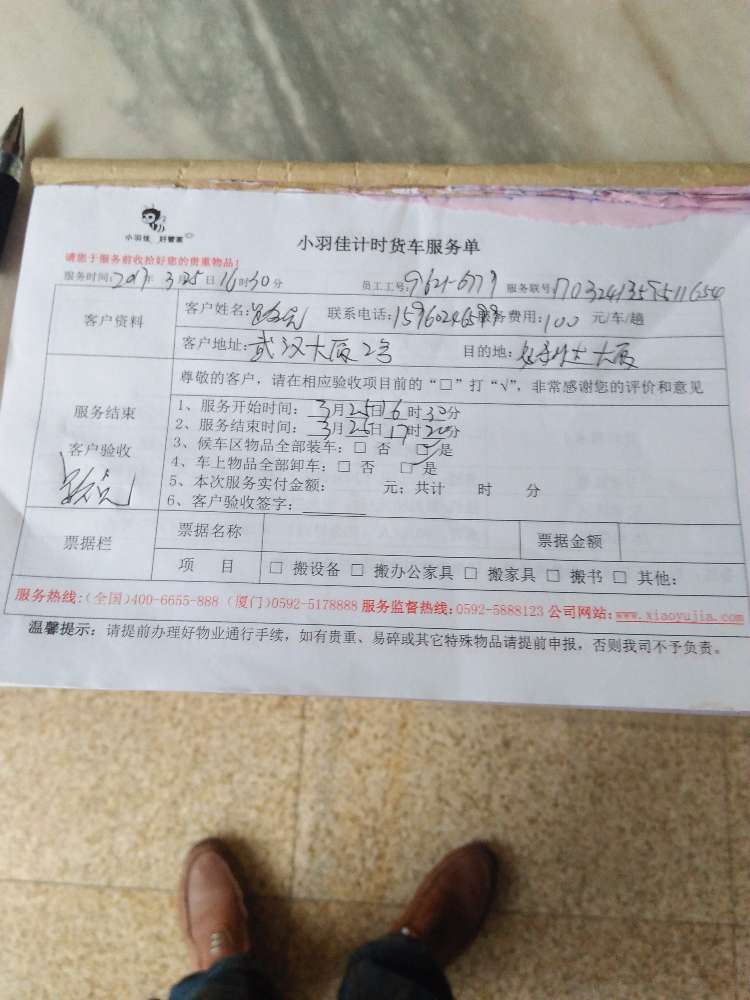 小羽佳 好管家
小羽佳计时货车服务单
请您于服务前收拾好您的贵重物品!
服务时间: 2017年 3月25日16时30分 员工工号: 9621-6779 服务联号:
客户资料
客户姓名: 联系电话: 服务费用: 100 元/车/趟
客户地址: 武汉大厦2号 目的地: 大厦
服务结束
客户验收
尊敬的客户,请在相应验收项目前的“□”打“√”,非常感谢您的评价和意见
1、服务开始时间: 3月25日16时30分
2、服务结束时间: 3月25日17时20分
3、候车区物品全部装车: □ 否 □ 是
4、车上物品全部卸车: □ 否 □ 是
5、本次服务实付金额: 元; 共计 时 分
6、客户验收签字:
票据栏
票据名称 票据金额
项 目 □ 搬设备 □ 搬办公家具 □ 搬家具 □ 搬书 □ 其他:
服务热线:(全国)400-6655-888 (厦门)0592-5178888 服务监督热线:0592-5888123 公司网站: www.xiaoyujia.com
温馨提示: 请提前办理好物业通行手续,如有贵重、易碎或其它特殊物品请提前申报,否则我司不予负责。